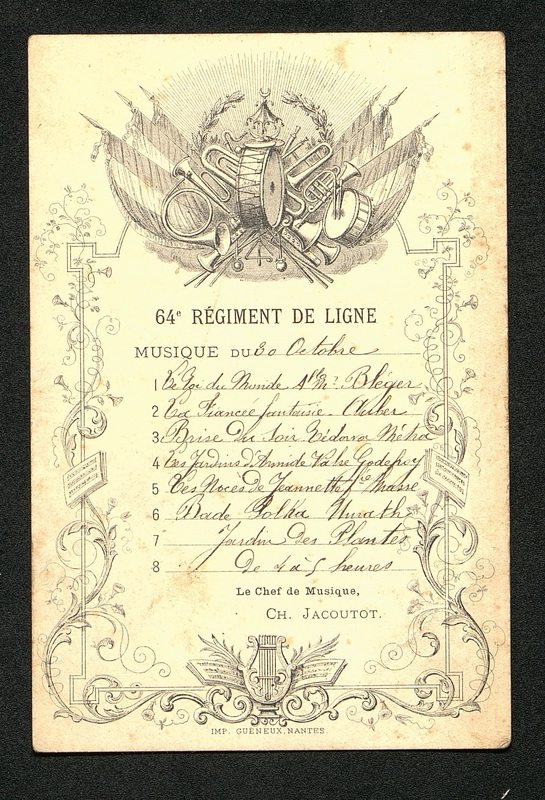 64e RÉGIMENT DE LIGNE
MUSIQUE DU 30 Octobre
1 Le Roi du Monde Alle Mre Bléger
2 La Fiancée fantaisie - Auber
3 Brise du Soir Métra
4 Les Jardins d'Armide Valse Godefroy
5 Les Noces de Jeannette fsie Massé
6 Polka
7 Jardin des Plantes
8 De 4 à 5 heures
Le Chef de Musique,
CH. JACOUTOT.
IMP. GUÉNEUX, NANTES